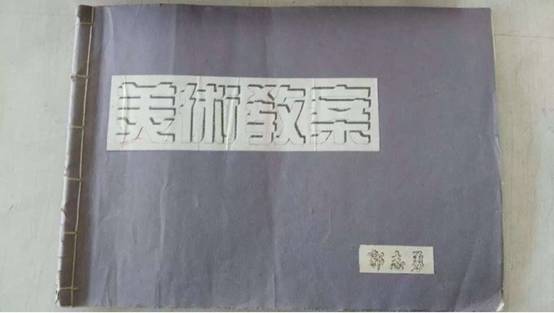 美術教案
郭志勇